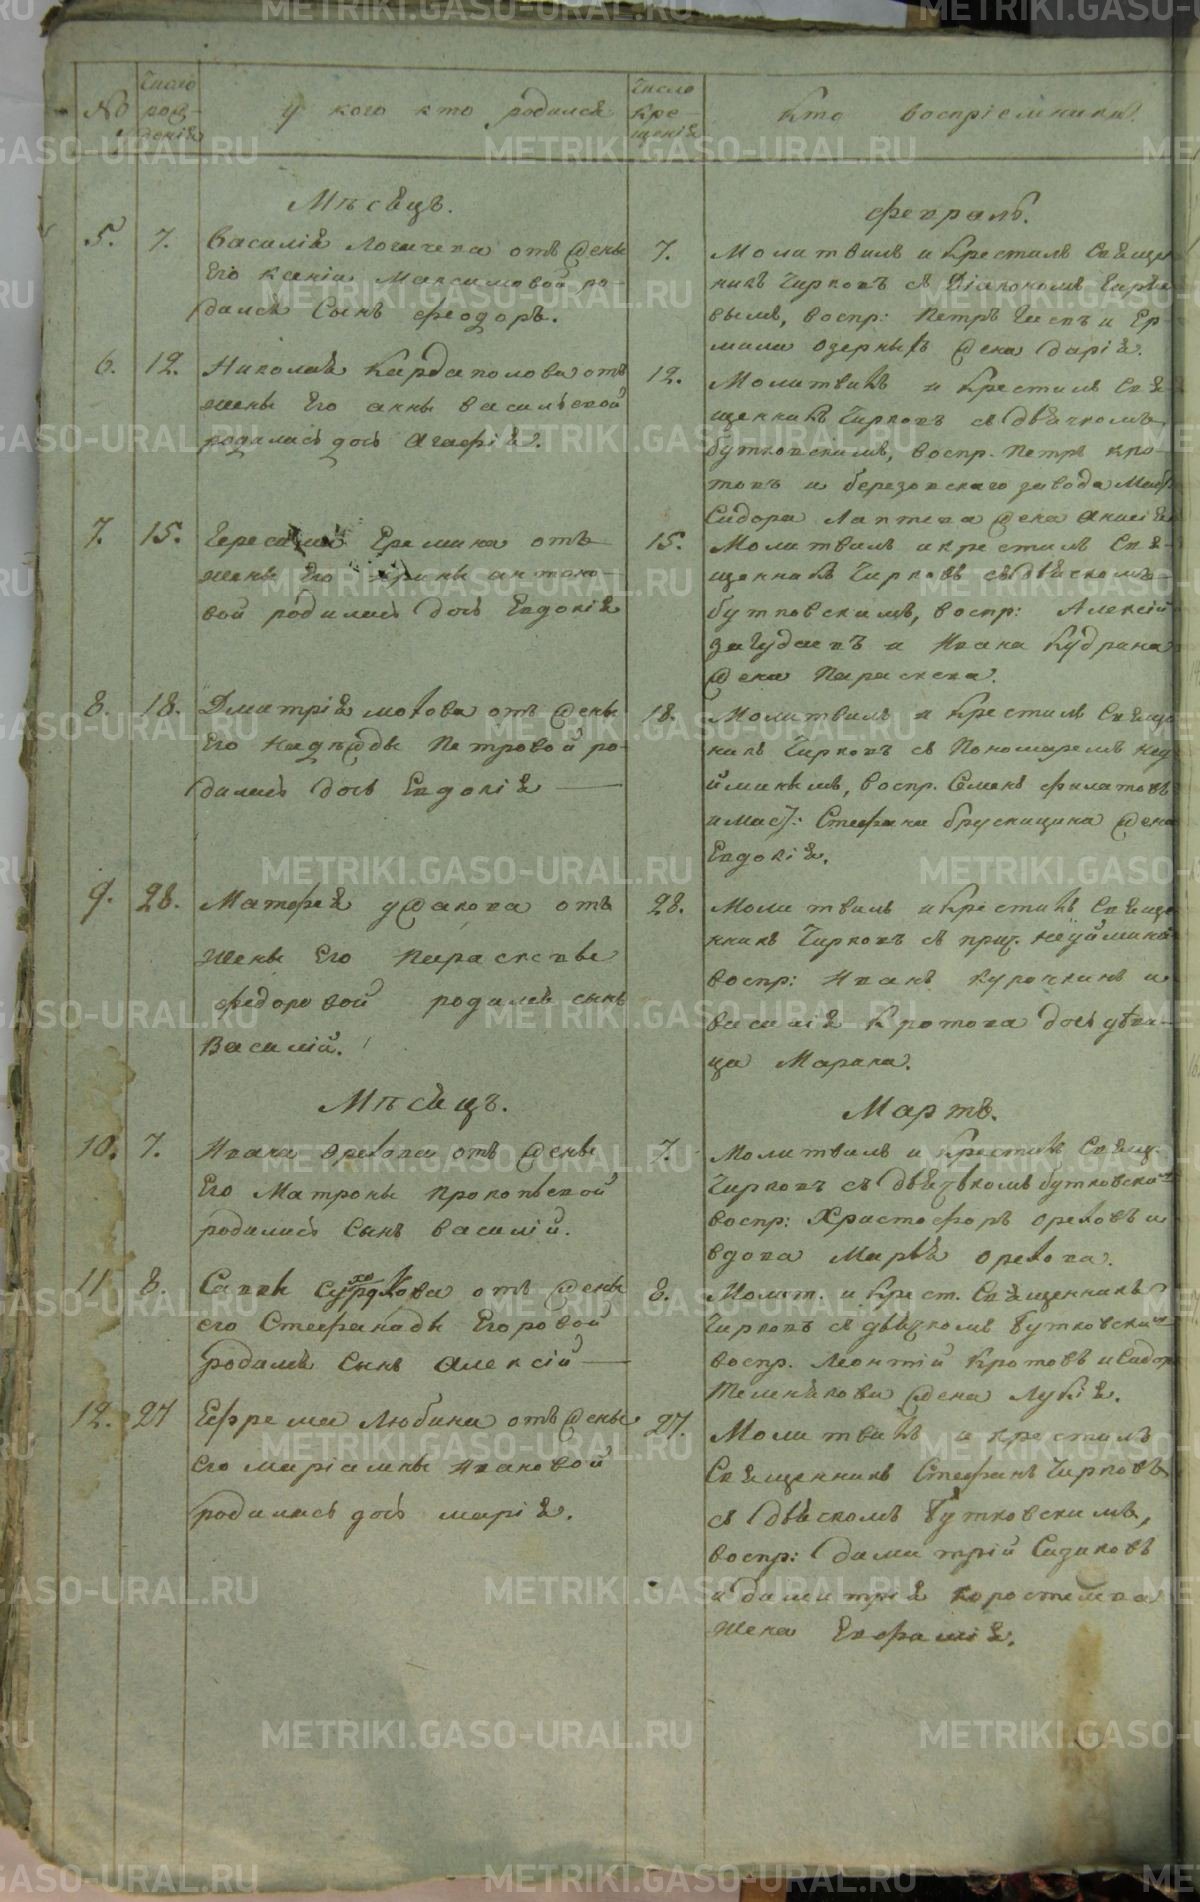 №
Число рождения
У кого кто родился
Число крещения
Кто воспріемники.
Мѣсяцъ.
февраль.
5. 7.
Василія Логачева отъ жены
Его Ксеніи Максимовой ро-
дился Сынъ феодоръ.
7.
Молитвилъ и Крестилъ Свяще
никъ Чирковъ съ Діакономъ
вымъ, воспр: Петръ и Ер-
мила озерныхъ жена дарія.
6. 12.
Николая Кардаполова отъ
жены Его анны васильевой
родилась дочь Агафія.
12.
Молитвилъ и Крестилъ Свя-
щенникъ Чирковъ съ дьячкомъ
бутковскимъ, воспр. Петръ кро-
товъ и березовскаго завода Маст.
Сидора Лаптева жена Анисія
7. 15.
Еремина отъ
жены Его Ирины антоно-
вой родилась дочь Евдокія
15.
Молитвилъ и крестилъ Свя-
щенникъ Чирковъ съ дьячкомъ
бутковскимъ, воспр: Алексій
и Ивана Кудрина
жена Параскева.
8. 18.
Дмитрія мохова отъ жены
Его Надежды Петровой ро-
дилась дочь Евдокія
18.
Молитвилъ и Крестилъ Священ
никъ Чирковъ съ Пономаремъ неу
йминымъ, воспр. Семенъ филатовъ
и маст: Стефана брусницина жена
Евдокія.
9. 28.
Матфея ушакова отъ
жены Его Параскевы
федоровой родился сынъ
Василій.
28.
Молитвилъ и Крестилъ Священ
никъ Чирковъ съ прич. неуймина
воспр: Иванъ курочкинъ и
василія Кротова дочь дѣви-
ца Марина.
Мѣсяцъ.
Мартъ.
10. 7.
Ивана орехова отъ жены
Его Матроны прокопьевой
родился Сынъ василій.
7.
Молитвилъ и Крестилъ Свящ.
Чирковъ съ дьячкомъ бутковским
воспр: Христофоръ ореховъ и
вдова Марья орехова.
11. 8.
Саввы отъ жены
его Стефаниды Егоровой
родился Сынъ Алексій
8.
Молит. и Крест. Священникъ
Чирковъ съ дьячкомъ бутковским
воспр. Леонтій Кротовъ и Сидор
жена Лукія.
12. 27
Ефрема Любина отъ жены
его маріамны Ивановой
родилась дочь марія.
27.
Молитвилъ и крестилъ
Священникъ Стефанъ Чирковъ
съ дьячкомъ бутковскимъ,
воспр: димитрій Сизиковъ
и димитрія коростелева
жена Евфимія.